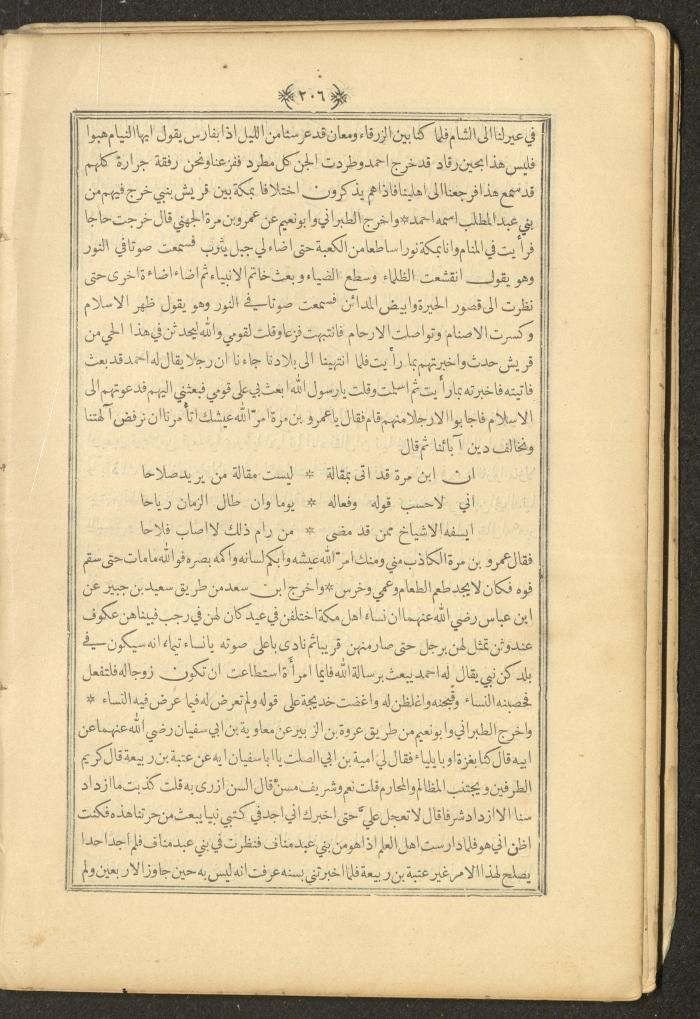 ٢٠٦
في عير لنا الى الشام فلما كنا بين الزرقاء ومعان قد عرسنا من الليل اذا بفارس يقول ايها النيام هبوا
فليس هذا بحين رقاد قد خرج احمد وطردت الجن كل مطرد ففزعنا ونحن رفقة جرارة كلهم
قد سمع هذا فرجعنا الى اهلينا فاذا هم يذكرون اختلافا بمكة بين قريش بنبي خرج فيهم من
بني عبد المطلب اسمه احمد * واخرج الطبراني وابو نعيم عن عمرو بن مرة الجهني قال خرجت حاجا
فرأيت في المنام وانا بمكة نورا ساطعا من الكعبة حتى اضاء لي جبل يثرب فسمعت صوتا في النور
وهو يقول انقشعت الظلماء وسطع الضياء وبعث خاتم الانبياء ثم اضاء اضاءة اخرى حتى
نظرت الى قصور الحيرة وابيض المدائن فسمعت صوتا في النور وهو يقول ظهر الاسلام
وكسرت الاصنام وتواصلت الارحام فانتبهت فزعا وقلت لقومي والله ليحدثن في هذا الحي من
قريش حدث واخبرتهم بما رأيت فلما انتهينا الى بلادنا جاءنا ان رجلا يقال له احمد قد بعث
فاتيته فاخبرته بما رأيت ثم اسلمت وقلت يا رسول الله ابعث بي على قومي فبعثني اليهم فدعوتهم الى
الاسلام فاجابوا الا رجلا منهم قام فقال يا عمرو بن مرة امرّ الله عيشك اتأمرنا ان نرفض آلهتنا
ونخالف دين آبائنا ثم قال
ان ابن مرة قد اتى بمقالة * ليست مقالة من يريد صلاحا
اني لاحسب قوله وفعاله * يوما وان طال الزمان رياحا
ايسفه الاشياخ ممن قد مضى * من رام ذلك لا اصاب فلاحا
فقال عمرو بن مرة الكاذب مني ومنك امرّ الله عيشه وابكم لسانه واكمه بصره فوالله ما مات حتى سقم
فوه فكان لا يجد طعم الطعام وعمي وخرس * واخرج ابن سعد من طريق سعيد بن جبير عن
ابن عباس رضي الله عنهما ان نساء اهل مكة اختلفن في عيد كان لهن في رجب فبينا هن عكوف
عند وثن تمثل لهن برجل حتى صار منهن قريبا ثم نادى باعلى صوته يا نساء تيماء انه سيكون في
بلدكن نبي يقال له احمد يبعث برسالة الله فايما امرأة استطاعت ان تكون زوجا له فلتفعل
فحصبنه النساء وقبحنه واغلظن له واغضت خديجة على قوله ولم تعرض له فيما عرض فيه النساء *
واخرج الطبراني وابو نعيم من طريق عروة بن الزبير عن معاوية بن ابي سفيان رضي الله عنهما عن
ابيه قال كنا بغزة او بايلياء فقال لي امية بن ابي الصلت يا ابا سفيان ايه عن عتبة بن ربيعة قال كريم
الطرفين ويجتنب المظالم والمحارم قلت نعم وشريف مسن قال السن ازرى به قلت كذبت ما ازداد
سنا الا ازداد شرفا قال لا تعجل عليّ حتى اخبرك اني اجد في كتبي نبيا يبعث من حرتنا هذه فكنت
اظن اني هو فلما دارست اهل العلم اذا هو من بني عبد مناف فنظرت في بني عبد مناف فلم اجد احدا
يصلح لهذا الامر غير عتبة بن ربيعة فلما اخبرتني بسنه عرفت انه ليس به حين جاوز الاربعين ولم